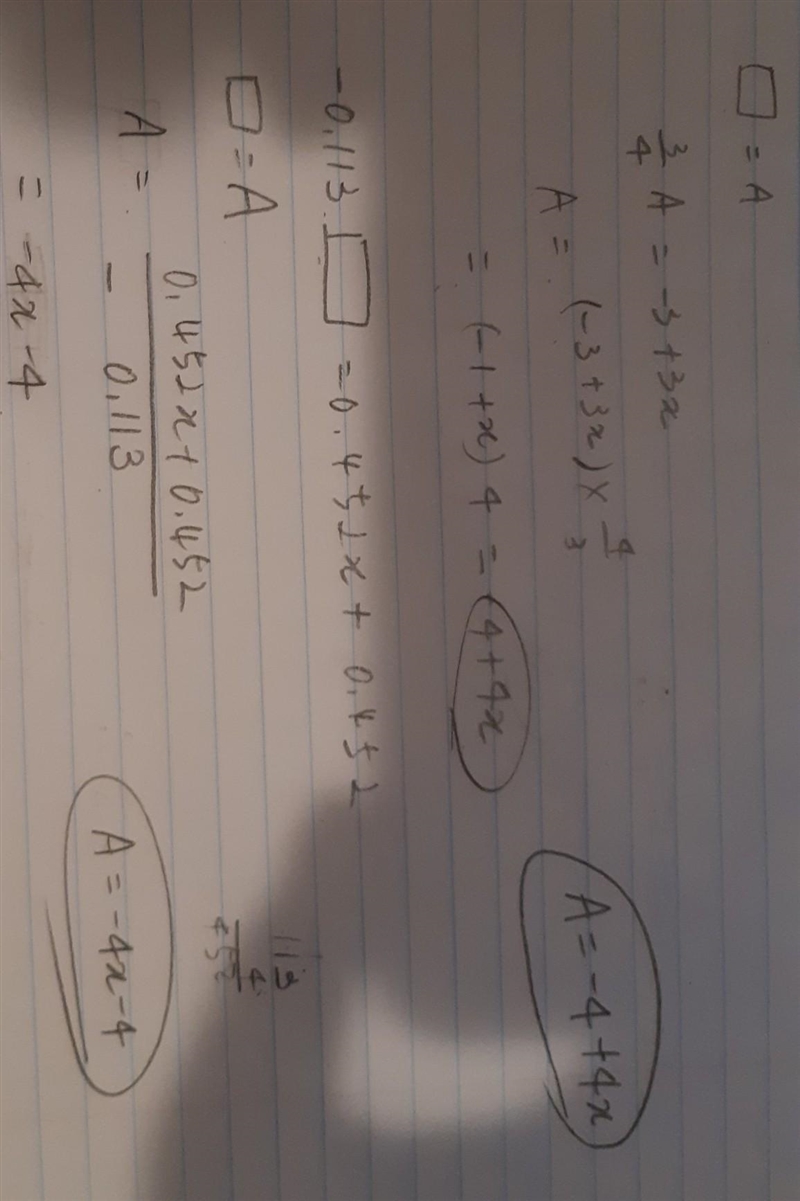 □ = A
3/4 A = -3+3x
A = (-3+3x) × 4/3
= (-1+x) 4 = -4+4x
A = -4+4x
-0.113 □ = 0.452x + 0.452
□ = A
113
4
452
A = 0.452x + 0.452 / - 0.113
= -4x -4
A = -4x-4